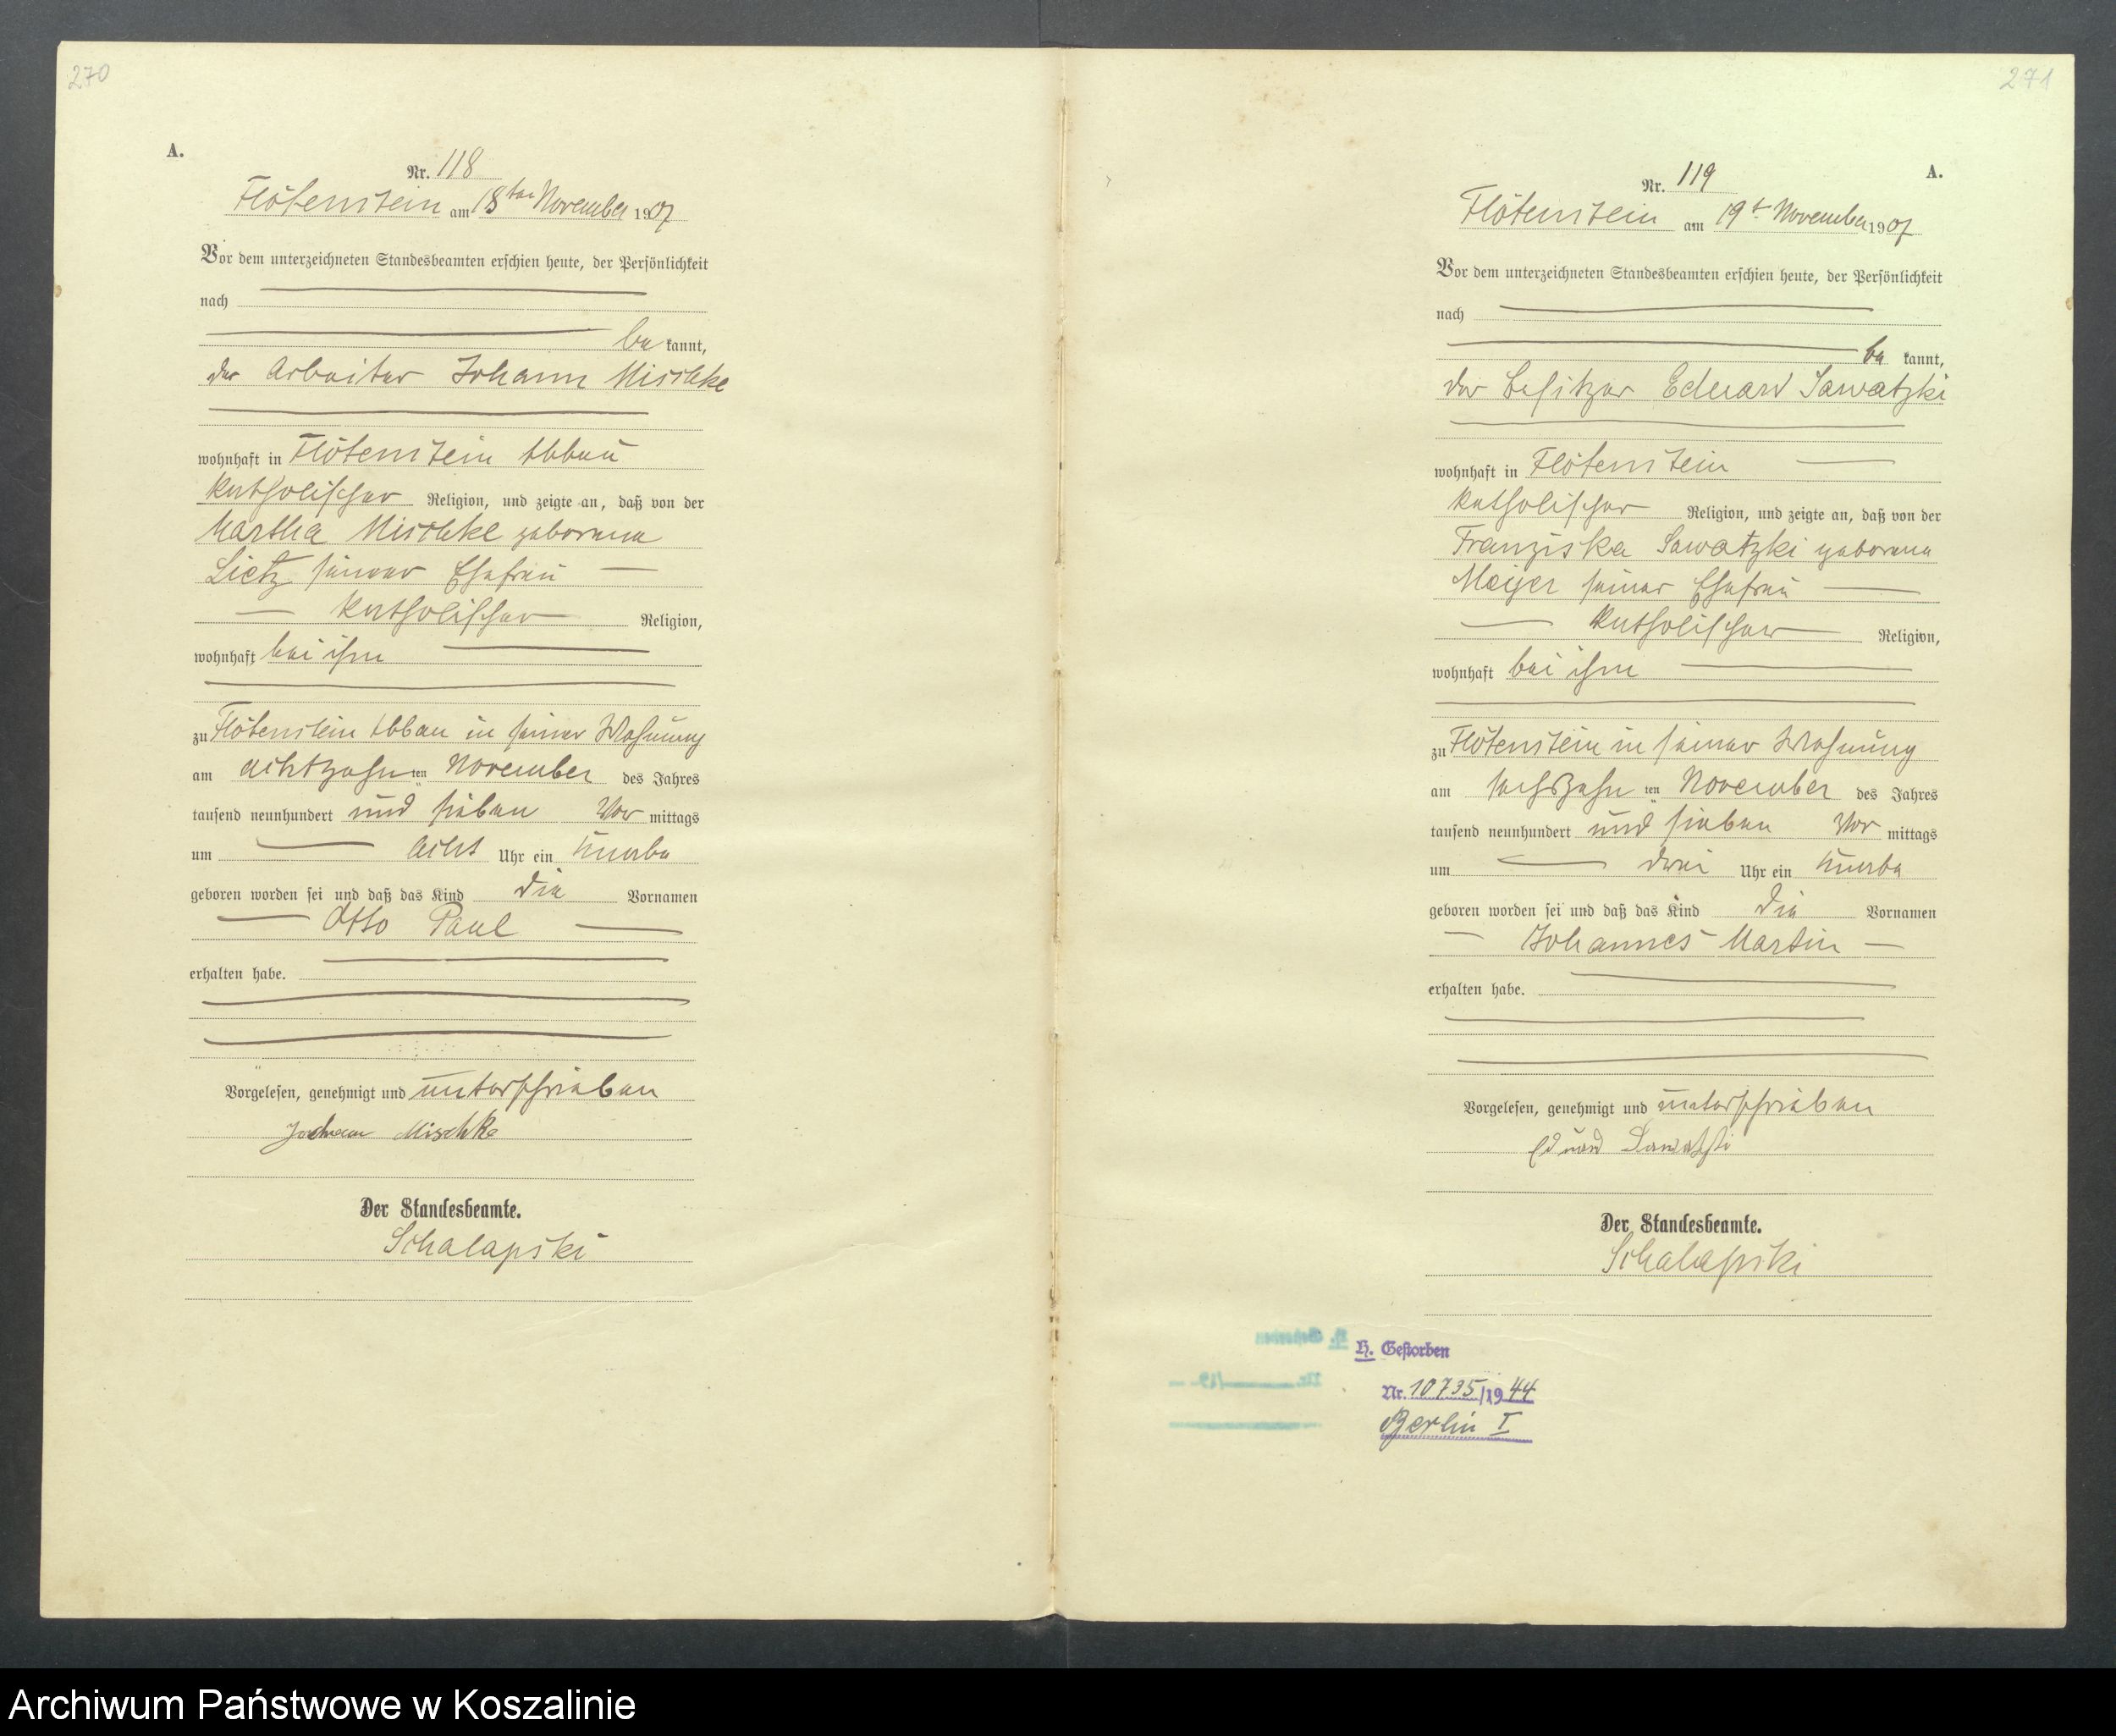 270
A.
Nr. 118
Flötenstein am 18ten November 1907
Vor dem unterzeichneten Standesbeamten erschien heute, der Persönlichkeit
nach
be kannt,
der Arbeiter Johann Mischke
wohnhaft in Flötenstein Abbau
katholischer Religion, und zeigte an, daß von der
Martha Mischke geborene
Lietz seiner Ehefrau
katholischer Religion,
wohnhaft bei ihm
zu Flötenstein Abbau in seiner Wohnung
am achtzehn ten November des Jahres
tausend neunhundert und sieben Vor mittags
um acht Uhr ein Knabe
geboren worden sei und daß das Kind die Vornamen
Otto Paul
erhalten habe.
Vorgelesen, genehmigt und unterschrieben
Johann Mischke
Der Standesbeamte.
Schalapski
271
A.
Nr. 119
Flötenstein am 19t November 1907
Vor dem unterzeichneten Standesbeamten erschien heute, der Persönlichkeit
nach
be kannt,
der Besitzer Eduard Sawatzki
wohnhaft in Flötenstein
katholischer Religion, und zeigte an, daß von der
Franziska Sawatzki geborene
Meijer seiner Ehefrau
katholischer Religion,
wohnhaft bei ihm
zu Flötenstein in seiner Wohnung
am sechszehn ten November des Jahres
tausend neunhundert und sieben Vor mittags
um drei Uhr ein Knabe
geboren worden sei und daß das Kind die Vornamen
Johannes Martin
erhalten habe.
Vorgelesen, genehmigt und unterschrieben
Eduard Sawatzki
Der Standesbeamte.
Schalapski
H. Gestorben
Nr. 10735/1944
Berlin I
Archiwum Państwowe w Koszalinie